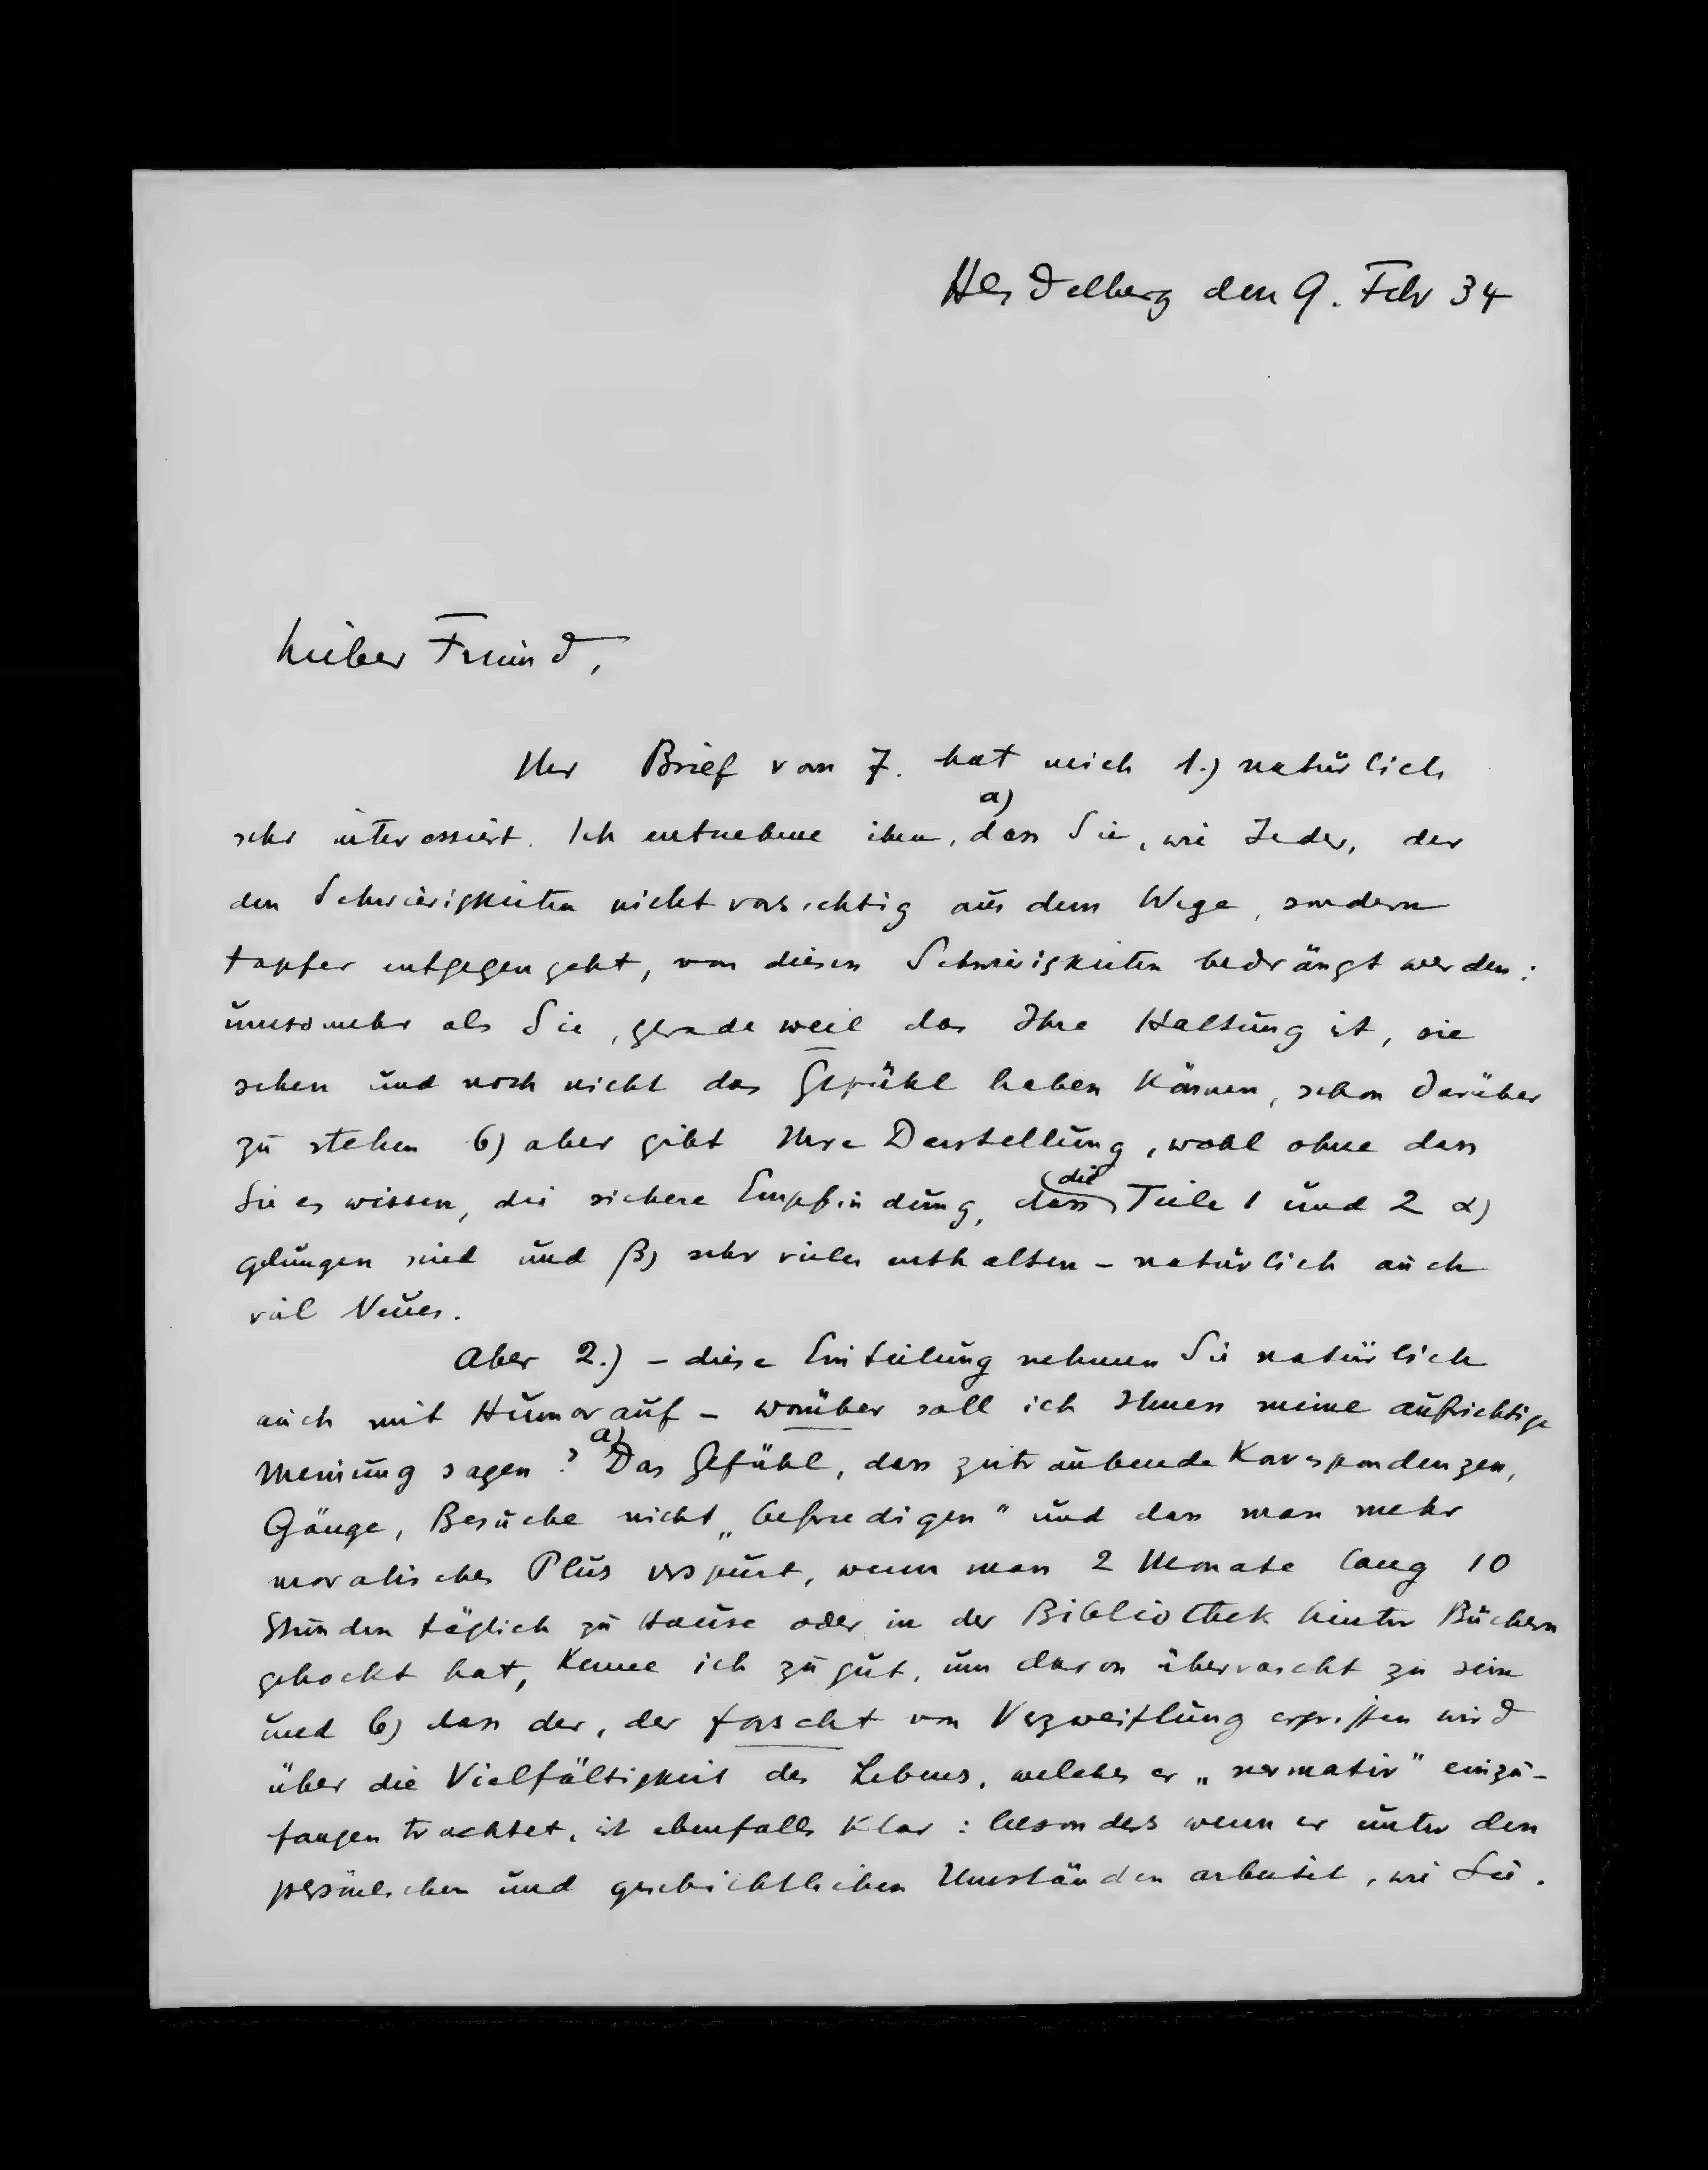 Heidelberg den 9. Febr 34
Lieber Freund,
Ihr Brief vom 7. hat mich 1.) natürlich
sehr interessiert. Ich entnehme ihm, a) dass Sie, wie Jeder, der
den Schwierigkeiten nicht vorsichtig aus dem Wege, sondern
tapfer entgegengeht, von diesen Schwierigkeiten bedrängt werden:
umsomehr als Sie, gerade weil das Ihre Haltung ist, sie
sehen und noch nicht das Gefühl haben können, schon darüber
zu stehen b) aber gibt Ihre Darstellung, wohl ohne dass
Sie es wissen, die sichere Empfindung, dass die Teile 1 und 2 α)
gelungen sind und β) sehr vieles enthalten – natürlich auch
viel Neues.
Aber 2.) – diese Einteilung nehmen Sie natürlich
auch mit Humor auf – worüber soll ich Ihnen meine aufrichtige
Meinung sagen? a) Das Gefühl, dass zeitraubende Korrespondenzen,
Gänge, Besuche nicht „befriedigen" und dass man mehr
moralisches Plus verspürt, wenn man 2 Monate lang 10
Stunden täglich zu Hause oder in der Bibliothek hinter Büchern
gehockt hat, kenne ich zu gut, um davon überrascht zu sein
und b) dass der, der forscht von Verzweiflung ergriffen wird
über die Vielfältigkeit des Lebens, welches er „normativ" einzu-
fangen trachtet, ist ebenfalls klar: besonders wenn er unter den
persönlichen und geschichtlichen Umständen arbeitet, wie Sie.